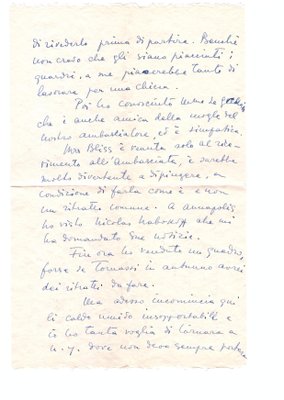 di rivederlo prima di partire. Benché
non credo che gli siano piaciuti i
quadri, a me piacerebbe tanto di
lavorare per una chiesa.
Poi ho conosciuto
che è anche amica della moglie del
nostro ambasciatore, ed è simpatica.
Mrs Bliss è venuta solo al rice-
vimento all'Ambasciata, e sarebbe
molto divertente a dipingere, a
condizione di farla come è e non
un ritratto comune. A Annapolis
ho visto Nicolas Nabokoff che mi
ha domandato Sue notizie.
Fin ora ho venduto un quadro,
forse se tornassi in autunno avrei
dei ritratti da fare.
Ma adesso incomincia qui
il caldo umido insopportabile e
io ho tanta voglia di tornare a
N.Y. dove non devo sempre portare